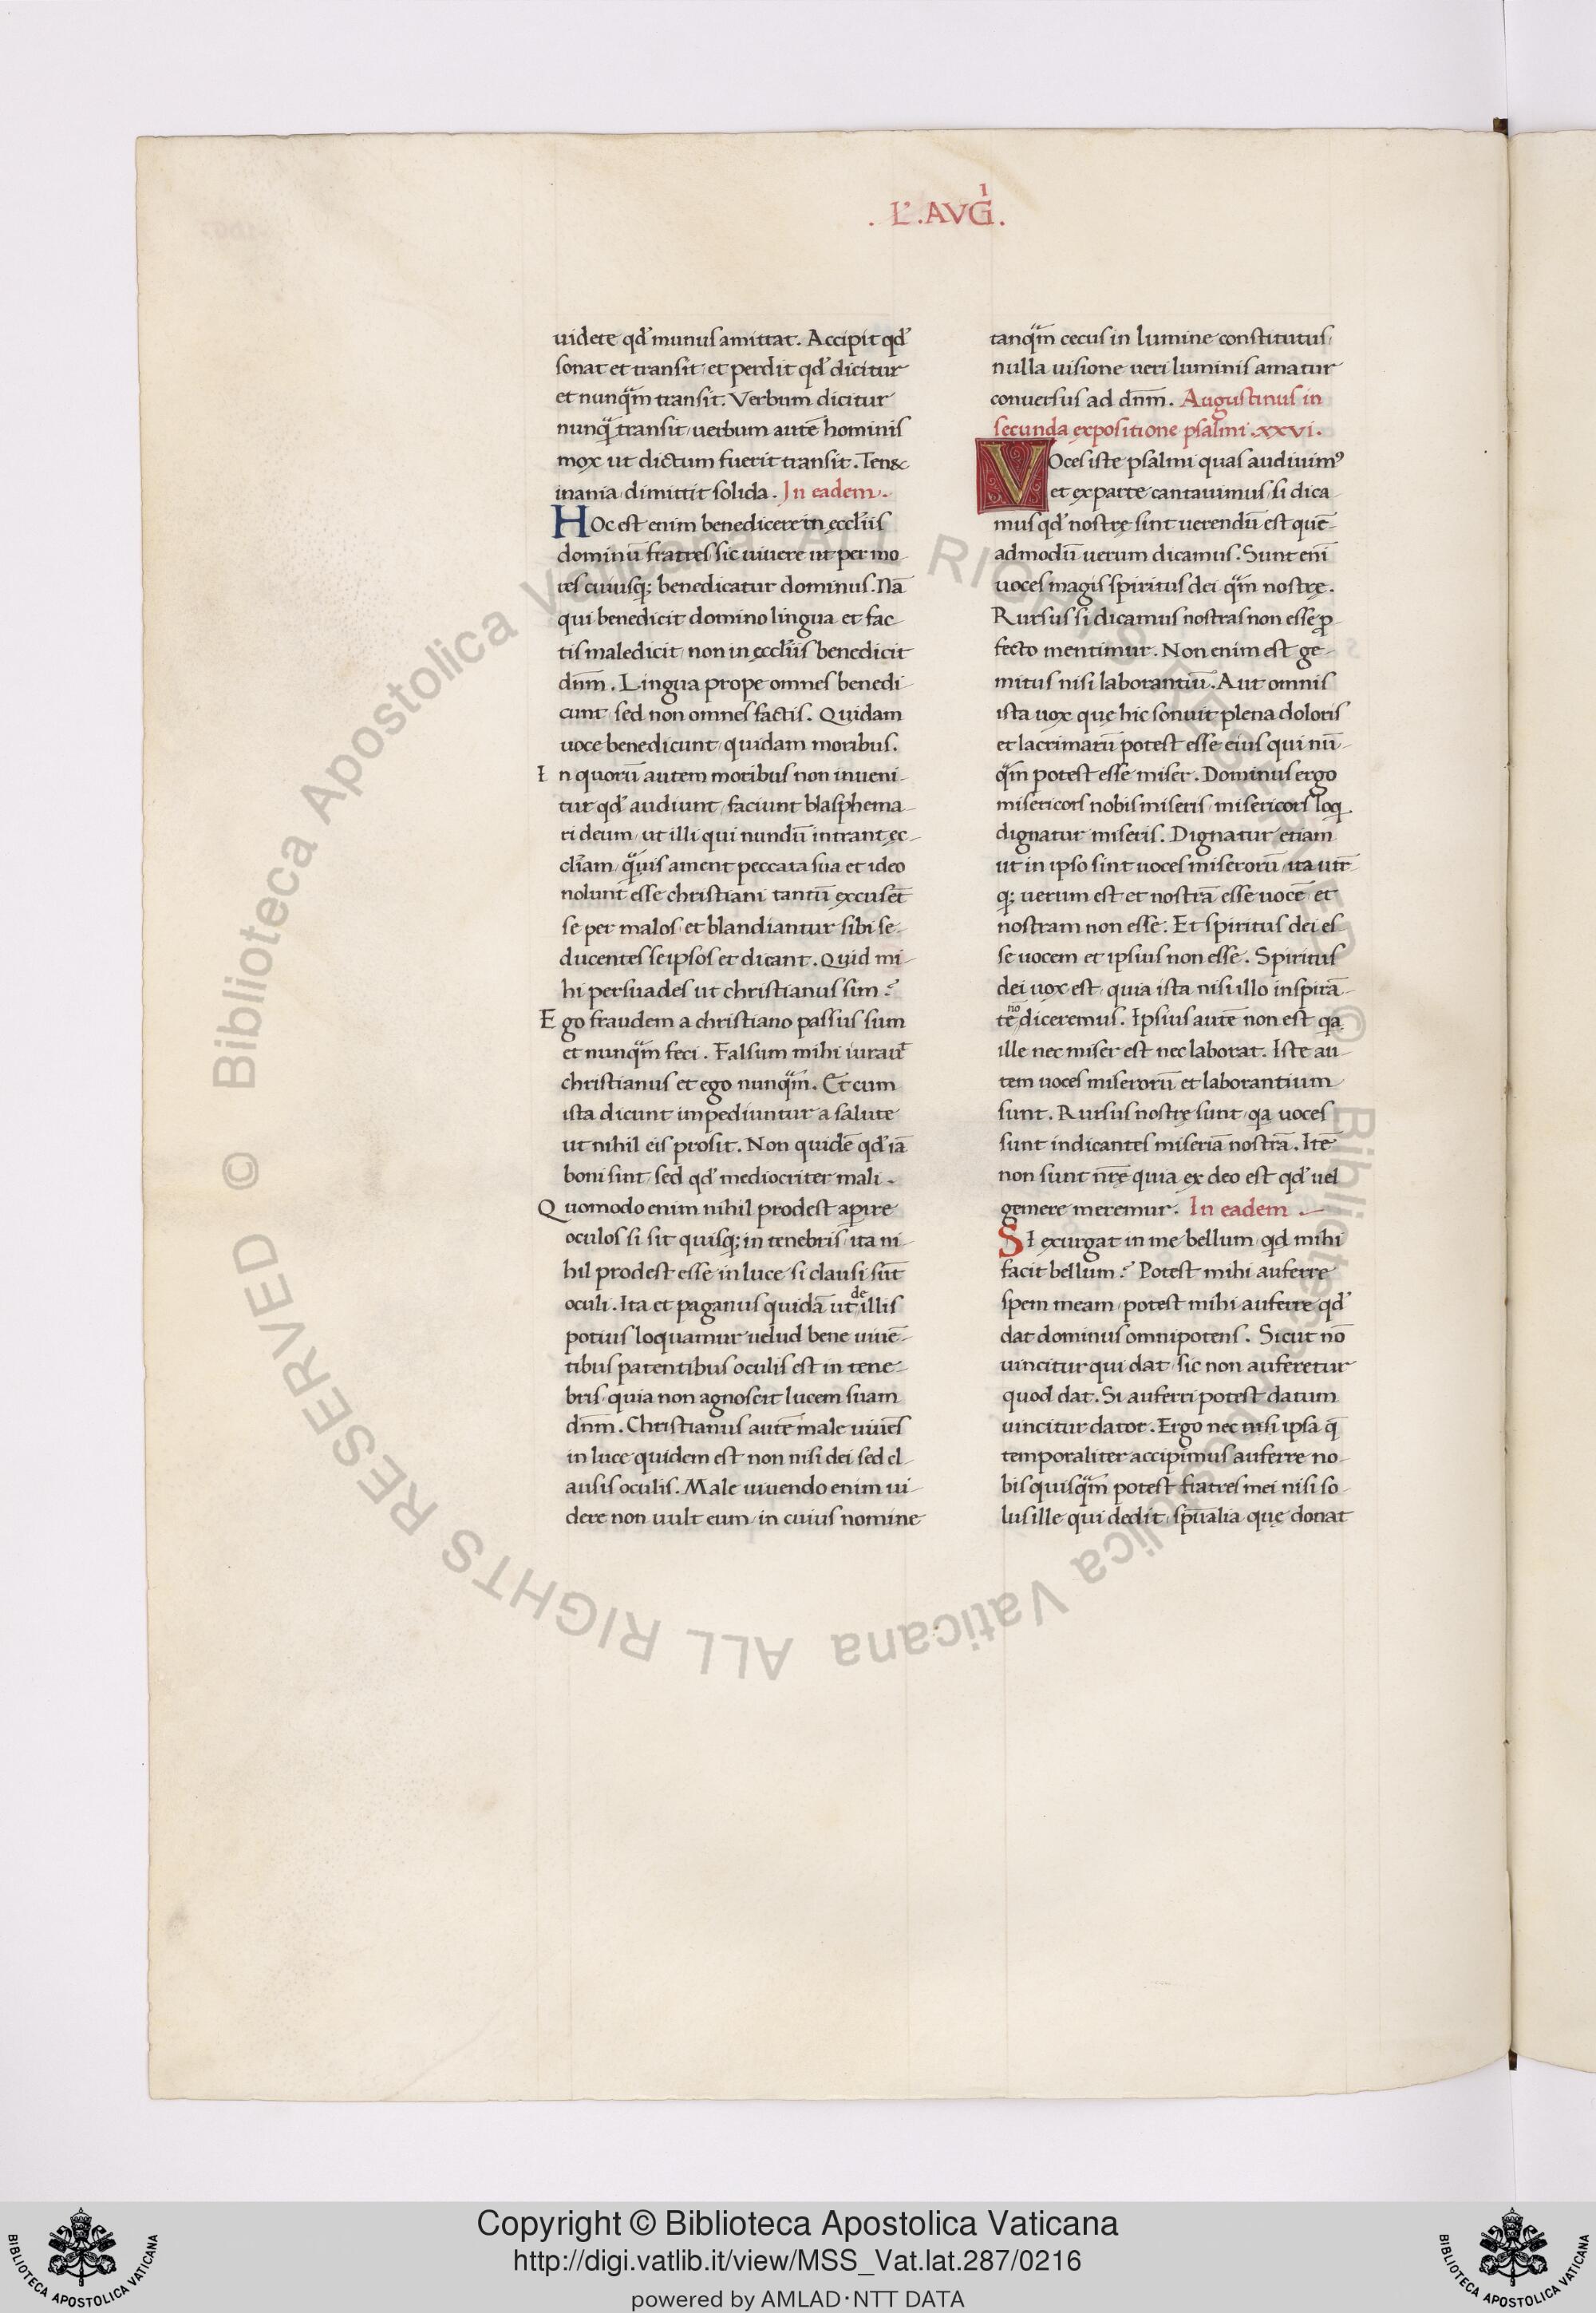 . L'. AVGͥ.
uidete qđ munus amittat. Accipit qđ
sonat et transit et perdit qđ dicitur
et nunqᷓm transit. Verbum dicitur
nunqᷓ transit, uerbum autē hominis
mox ut dictum fuerit transit. Ten&
inania, dimittit solida. In eadem.
HOc est enim benedicere in ęccl'iis
dominū fratres, sic uiuere ut per mo-
res cuiusq; benedicatur dominus. Nā
qui benedicit domino lingua et fac-
tis maledicit, non in ęccl'iis benedicit
dn̄m. Lingua prope omnes benedi-
cunt, sed non omnes factis. Quidam
uoce benedicunt, quidam moribus.
In quorū autem moribus non inueni-
tur qđ audiunt, faciunt blasphema-
ri deum, ut illi qui nundū intrant ęc-
cl'iam, qᷓuis ament peccata sua et ideo
nolunt esse christiani tantū excuset̄
se per malos, et blandiantur sibi se-
ducentes se ipsos et dicant. Quid mi-
hi persuades ut christianus sim?
Ego fraudem a christiano passus sum
et nunqᷓm feci. Falsum mihi iurauᷓt
christianus et ego nunqᷓm. Et cum
ista dicunt impediuntur a salute
ut nihil eis prosit. Non quidē qđ iā
boni sint, sed qđ mediocriter mali.
Quomodo enim nihil prodest apire
oculos si sit quisq; in tenebris, ita ni-
hil prodest esse in luce si clausi sūt
oculi. Ita et paganus quidā ut de illis
potius loquamur uelud bene uiuē-
tibus patentibus oculis est in tene-
bris, quia non agnoscit lucem suam
dn̄m. Christianus autē male uiuēs
in luce quidem est non nisi dei sed cl-
ausis oculis. Male uiuendo enim ui-
dere non uult eum, in cuius nomine
tanqᷓm cecus in lumine constitutus,
nulla uisione ueri luminis amatur
conuersus ad dn̄m. Augustinus in
secunda expositione psalmi .xxvi.
VOces iste psalmi quas audiuim⁹
et ex parte cantauimus, si dica
mus qđ nostrę sint uerendū est quē-
admodū uerum dicamus. Sunt enī
uoces magis spiritus dei qᷓm nostrę.
Rursus si dicamus nostras non esse ꝓ
fecto mentimur. Non enim est ge-
mitus nisi laborantiū. Aut omnis
ista uox quę hic sonuit plena doloris
et lacrimarū potest esse eius qui nū-
qᷓm potest esse miser. Dominus ergo
misericors nobis miseris, misericors loq
dignatur miseris. Dignatur etiam
ut in ipso sint uoces miserorū, ita utr̄
q; uerum est et nostrā esse uocē et
nostram non esse. Et spiritus dei es
se uocem et ipsius non esse. Spiritus
dei uox est, quia ista nisi illo inspirā-
te no diceremus. Ipsius autē non est qa
ille nec miser est nec laborat. Iste au-
tem uoces miserorū et laborantium
sunt. Rursus nostrę sunt, qa uoces
sunt indicantes miseriā nostrā. Itē
non sunt nr̄ę quia ex deo est qđ uel
gemere meremur. In eadem .
SI exurgat in me bellum, qđ mihi
facit bellum? Potest mihi auferre
spem meam, potest mihi auferre qđ
dat dominus omnipotens. Sicut nō
uincitur qui dat, sic non auferetur
quod dat. Si auferri potest datum
uincitur dator. Ergo nec nisi ipsa q̄
temporaliter accipimus auferre no-
bis quisqᷓm potest fratres mei nisi so-
lus ille qui dedit, spūalia quę donat
© Biblioteca Apostolica Vaticana ALL RIGHTS RESERVED
© Biblioteca Apostolica Vaticana ALL RIGHTS RESERVED
Copyright © Biblioteca Apostolica Vaticana
http://digi.vatlib.it/view/MSS_Vat.lat.287/0216
powered by AMLAD·NTT DATA
BIBLIOTECA APOSTOLICA VATICANA
BIBLIOTECA APOSTOLICA VATICANA